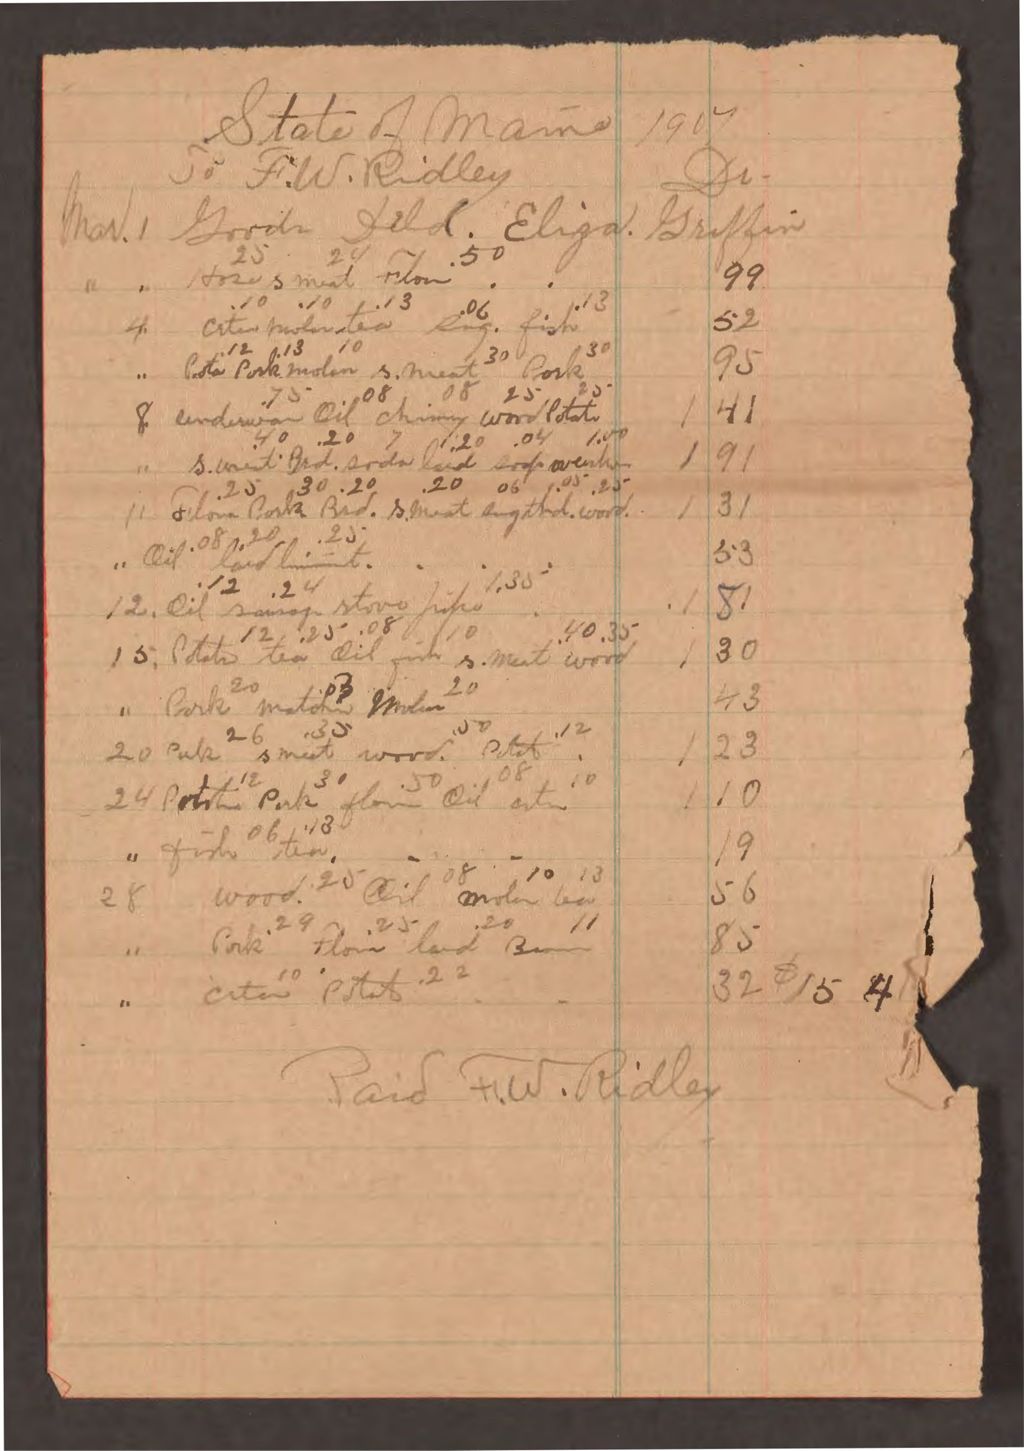 State of Maine 1907
To F.W. Ridley Dr.
Mar. 1 Goods Deld. Eliza. Griffin
" " Hose .25 s meat .24 Flour .50 . . 99
4. .10 molas .10 tea .13 sug. .06 fish .13 52
" Pota .12 Pork .13 molas 10 s. meat 30 Pork 30 95
8 underwear .75 Oil 08 chimny 08 wood 25 Potato 25 1 41
" s. meat .40 Brd. .20 soda 7 lard .20 soap .04 1.00 1 91
11 Flour .25 Pork 30 Brd. .20 s. meat .20 sug 06 thd. .05 wood. .25 1 31
" Oil .08 lard .20 liniment. .25 . . . 53
12. Oil .12 sausage .24 stove pipe 1.35 . 1 81
15. Potato 12 tea .25 Oil .08 fish 10 s. meat .40 wood .35 1 30
" Pork 20 matches 03 Molas 20 43
20 Pork 26 s meat .35 wood. .50 Potat .12 . 1 23
24 Potato 12 Pork 30 flour 50 Oil 08 10 1 10
" fish 06 tea, .13 - - - 19
28 wood. .25 Oil 08 molas 10 tea 13 56
" Pork .29 Flour .25 lard .20 11 85
" 10 Potato .22 - - 32 $15 4
Paid F.W. Ridley